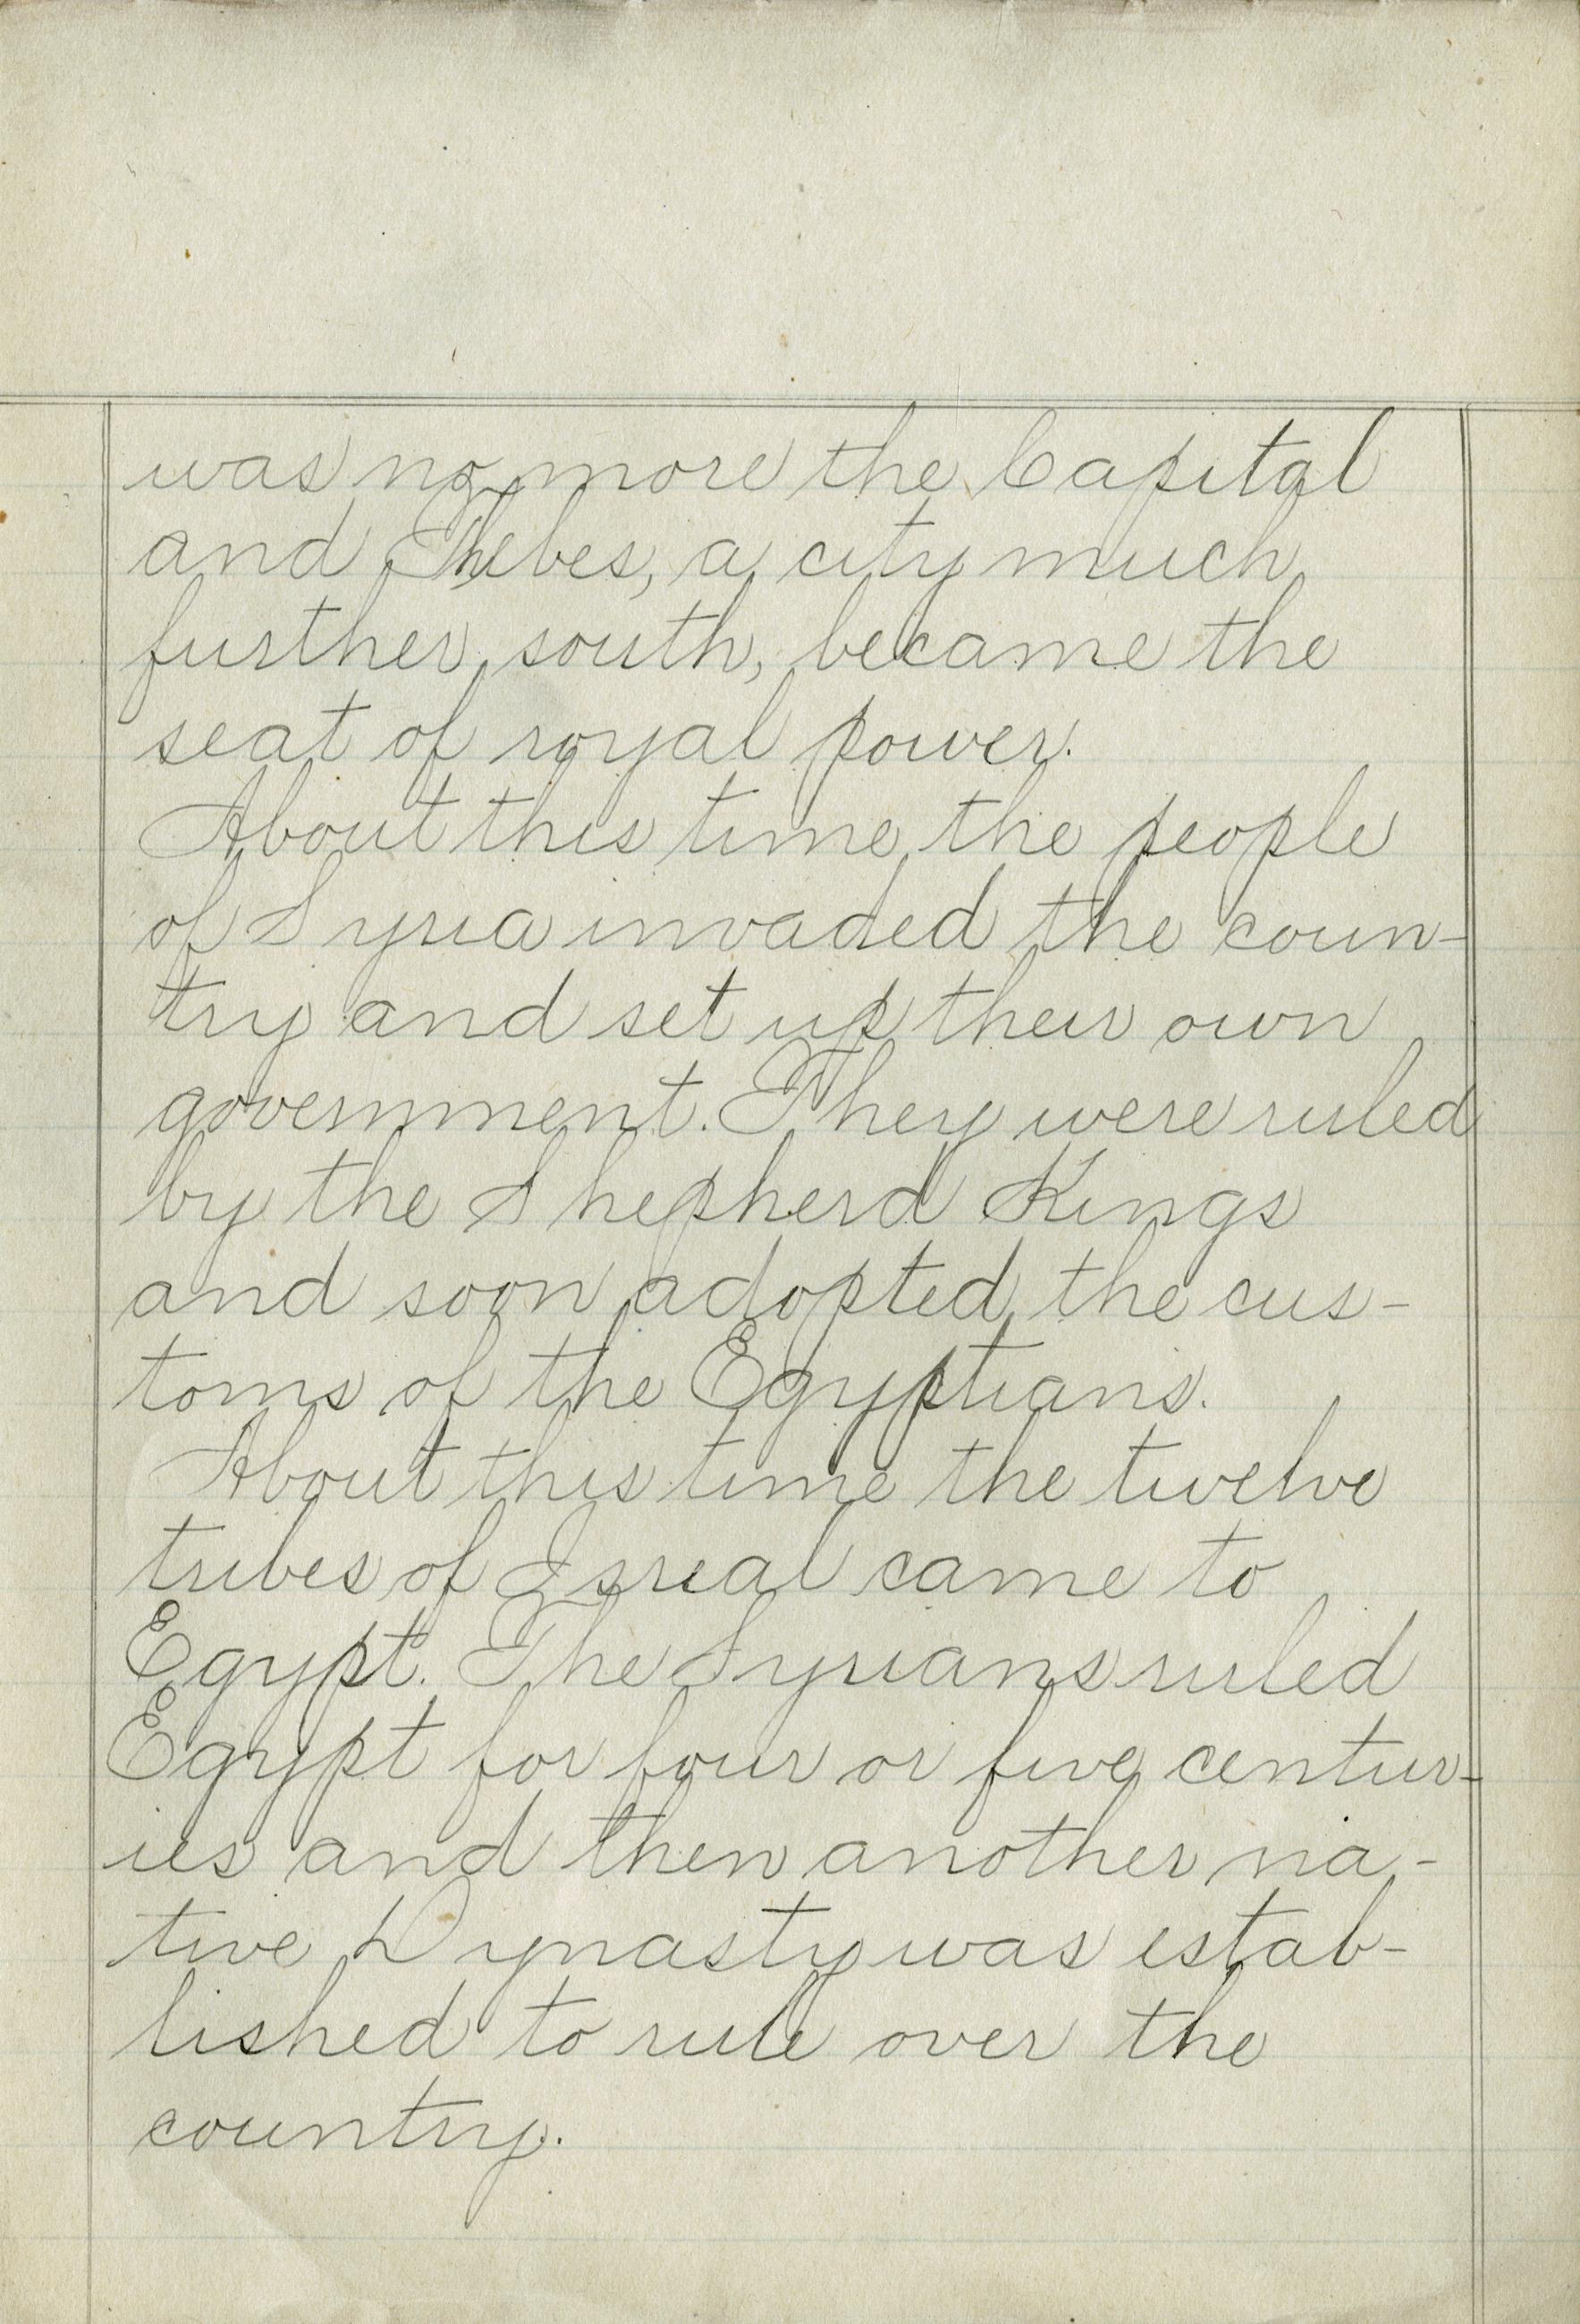 was no more the Capital
and Thebes, a city much
further south, became the
seat of royal power.
About this time the people
of Syria invaded the coun-
try and set up their own
government. They were ruled
by the Shepherd Kings
and soon adopted the cus-
toms of the Egyptians.
About this time the twelve
tribes of Isreal came to
Egypt. The Syrians ruled
Egypt for four or five centur-
ies and then another na-
tive Dynasty was estab-
lished to rule over the
country.